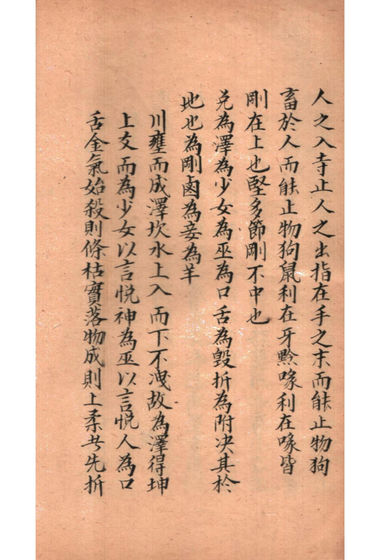 人之入寺止人之出指在手之末而能止物狗
畜於人而能止物狗鼠利在牙黔喙利在喙皆
剛在上也堅多節剛不中也
兌為澤為少女為巫為口舌為毀折為附決其於
地也為剛鹵為妾為羊
川壅而成澤坎水上入而下不洩故為澤得坤
上爻而為少女以言悅神為巫以言悅人為口
舌金氣始殺則條枯實落物成則上柔者先折